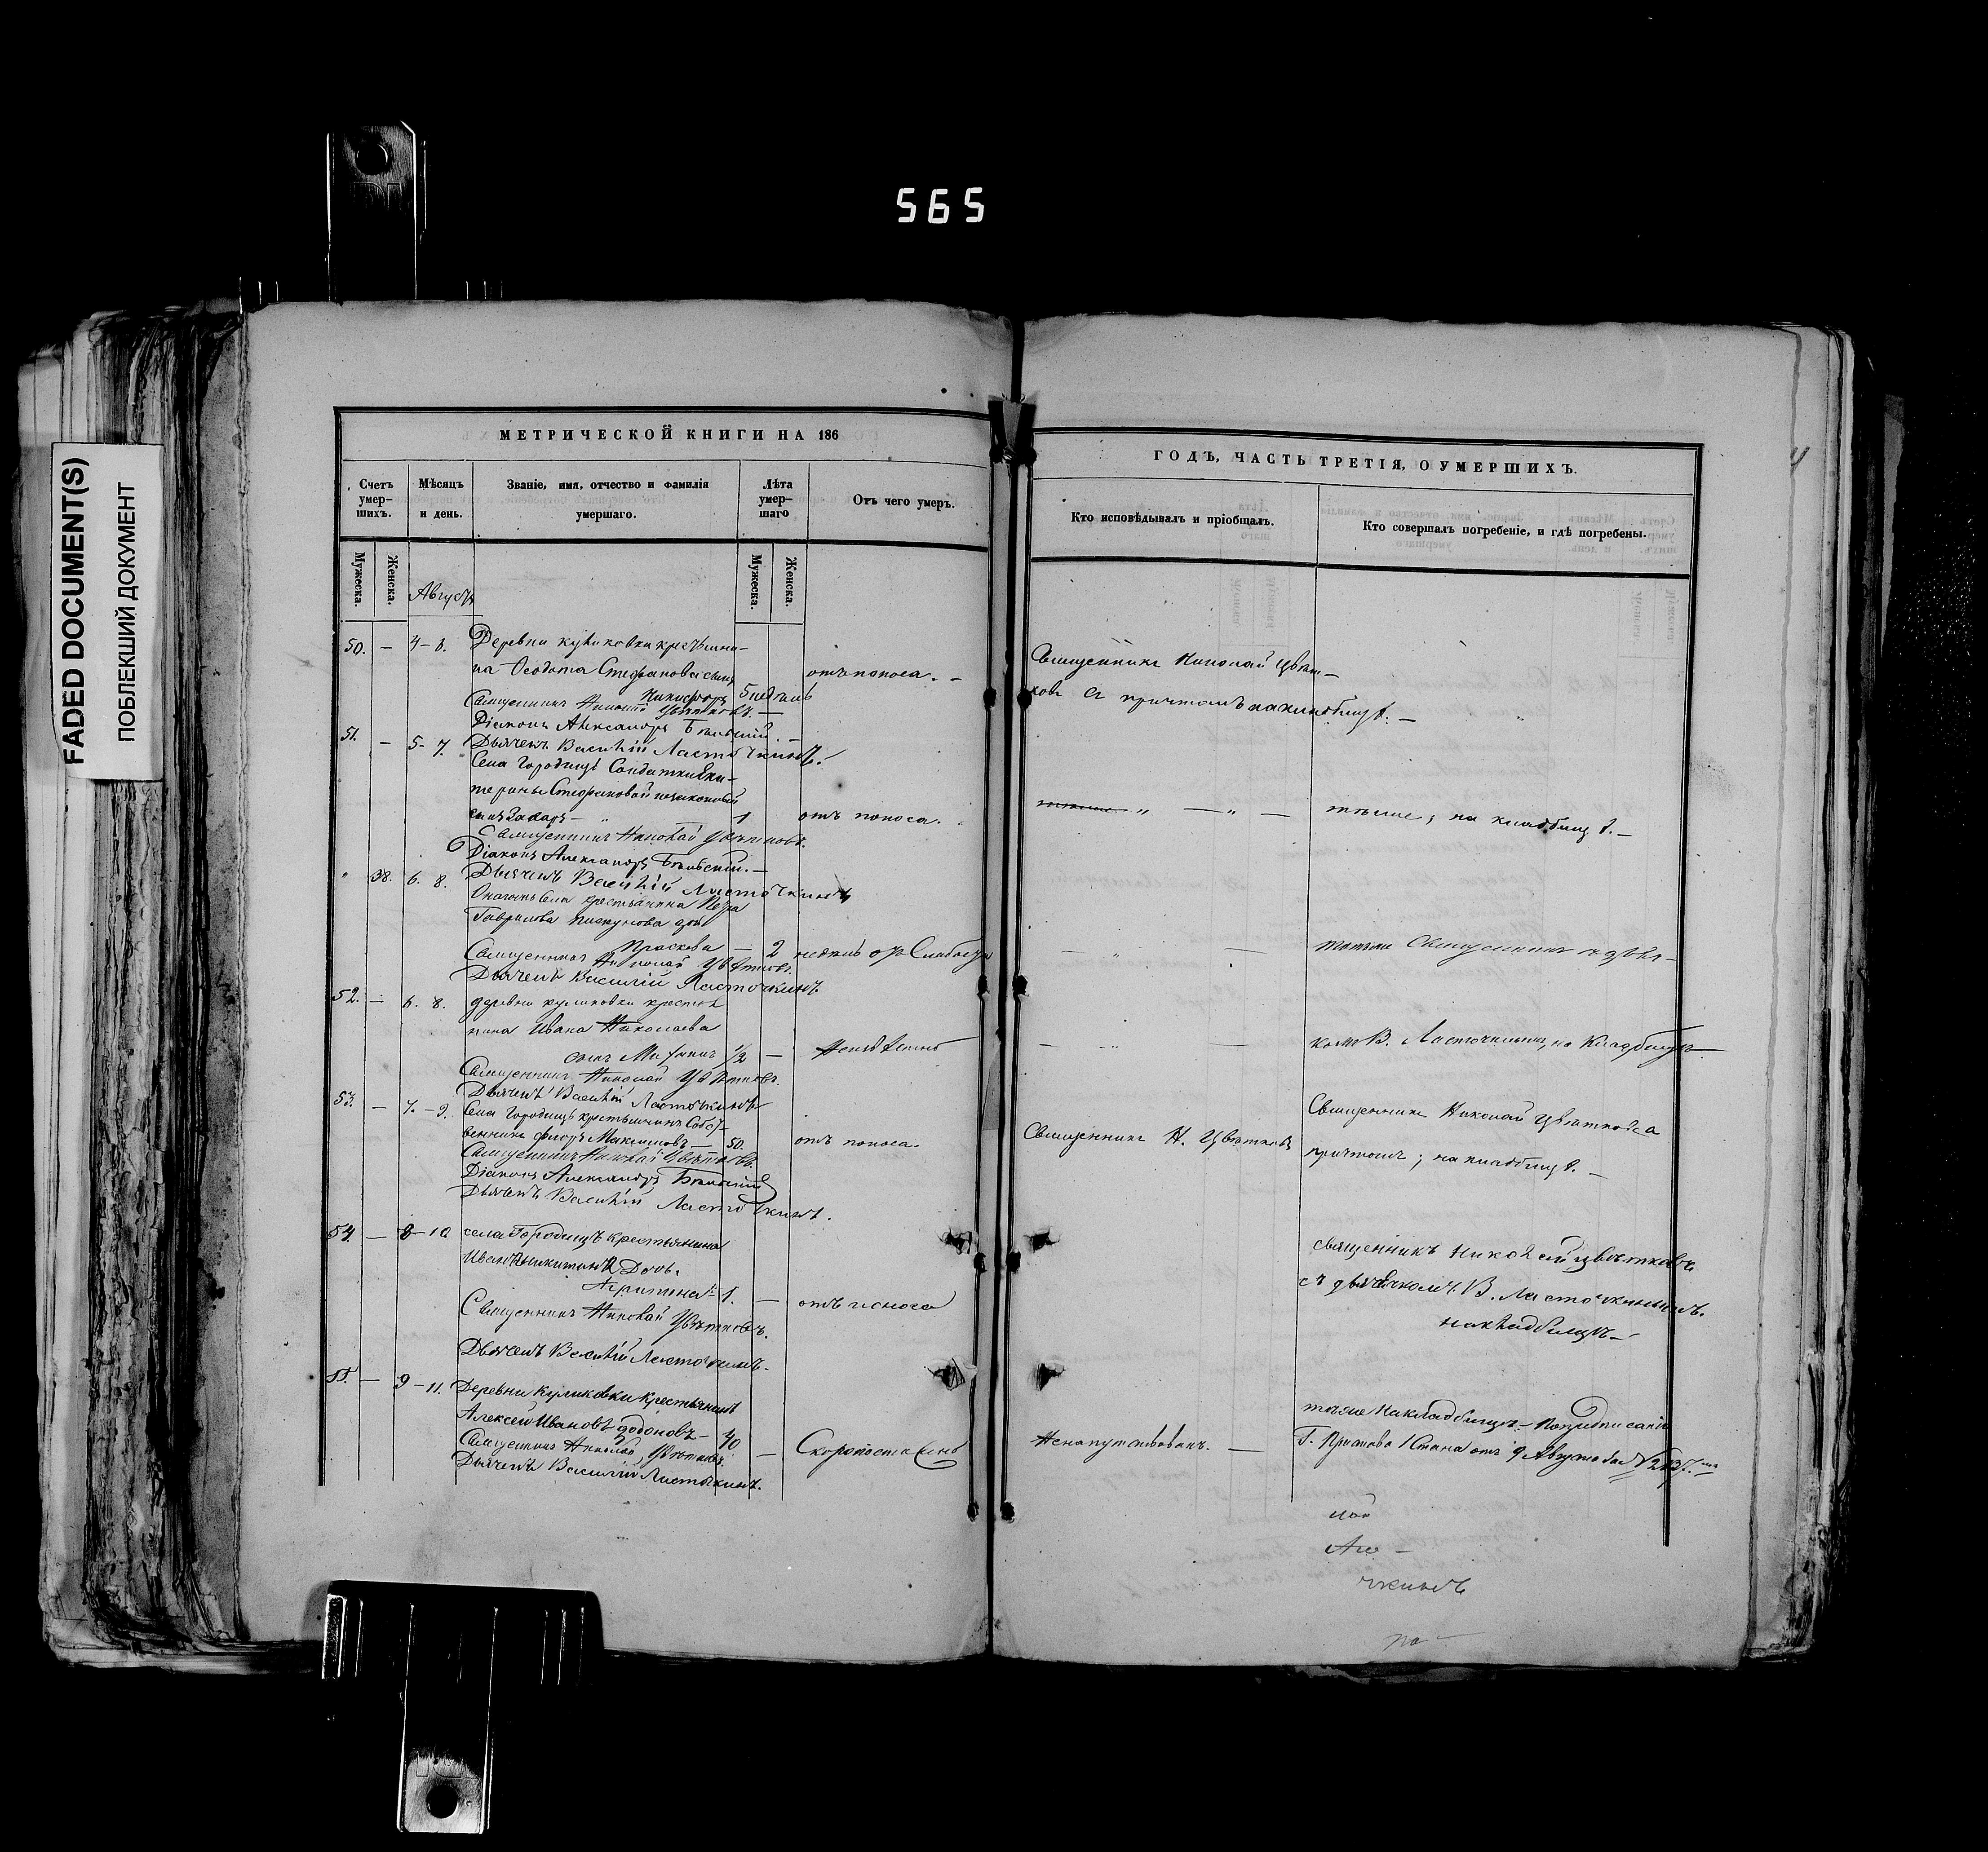 565
FADED DOCUMENT(S)
ПОБЛЕКШИЙ ДОКУМЕНТ
МЕТРИЧЕСКОЙ КНИГИ НА 186
Счетъ умер-шихъ.
Мѣсяцъ и день.
Званіе, имя, отчество и фамилія умершаго.
Лѣта умер-шаго
Отъ чего умеръ.
Мужеска.
Женска.
Мужеска.
Женска.
Августъ
50. — 4-6. Деревни Куликовки крестьяни-
на Ѳеодота Стефанова сынъ
отъ поноса. —
Никифоръ 5 недѣль
Священникъ Николай Цвѣтковъ. —
Діаконъ Александръ Бѣльскій. —
51. — 5-7. Дьячекъ Василій Ласточкинъ.
Села Городищъ Солдатки Ека-
терины Стефановой незаконный
сынъ Захаръ — 1 отъ поноса.
Священникъ Николай Цвѣтковъ.
Діаконъ Александръ Бѣльскій. —
" 38. 6. 8. Дьячекъ Василій Ласточкинъ
села крестьянина Петра
Гаврилова Пискунова дочь
Праскева — 2 недѣль отъ Слабости
Священникъ Николай Цвѣтковъ.
Дьячекъ Василій Ласточкинъ
52. — 6. 8. деревни куликовки крестья
нина Ивана Николаева
сынъ 1/2 — Неизвѣстно
Священникъ Николай Цвѣтковъ.
Дьячекъ Василій Ласточкинъ
53. — 7. - 9. Села Городищъ крестьянинъ Собст-
венникъ Максимовъ — 50. отъ поноса.
Священникъ Николай Цвѣтковъ.
Діаконъ Александръ Бѣльскій
Дьячекъ Василій Ласточкинъ.
54. — 8-10 села Городищъ крестьянина
Ивана Никитина Дочь
1. — отъ поноса
Священникъ Николай Цвѣтковъ.
Дьячекъ Василій Ласточкинъ.
55. — 9-11. Деревни Куликовки Крестьянинъ
Алексей Ивановъ — 40
Священникъ Николай Цвѣтковъ. — Скоропостижно
Дьячекъ Василій Ласточкинъ.
ГОДЪ, ЧАСТЬ ТРЕТІЯ, О УМЕРШИХЪ.
Кто исповѣдывалъ и пріобщалъ.
Кто совершалъ погребеніе, и гдѣ погребены.
Священникъ Николай Цвѣт-
ковъ съ причтомъ на кладбищѣ. —
" — " —
тѣже; на кладбищѣ. —
— " — тогоже Священникъ съ дьяч-
— " — комъ В. Ласточкинымъ, на Кладбищѣ —
Священникъ Николай Цвѣтковъ съ
Священникъ Н. Цвѣтковъ
причтомъ; на кладбищѣ. —
священникъ Николай Цвѣтковъ
съ дьячкомъ В. Ласточкинымъ.
на кладбищѣ —
тѣже на кладбищѣ —
Ненапутствованъ. — Г. Пристава 1 Стана отъ 9 Августа за №
чкинъ
на —